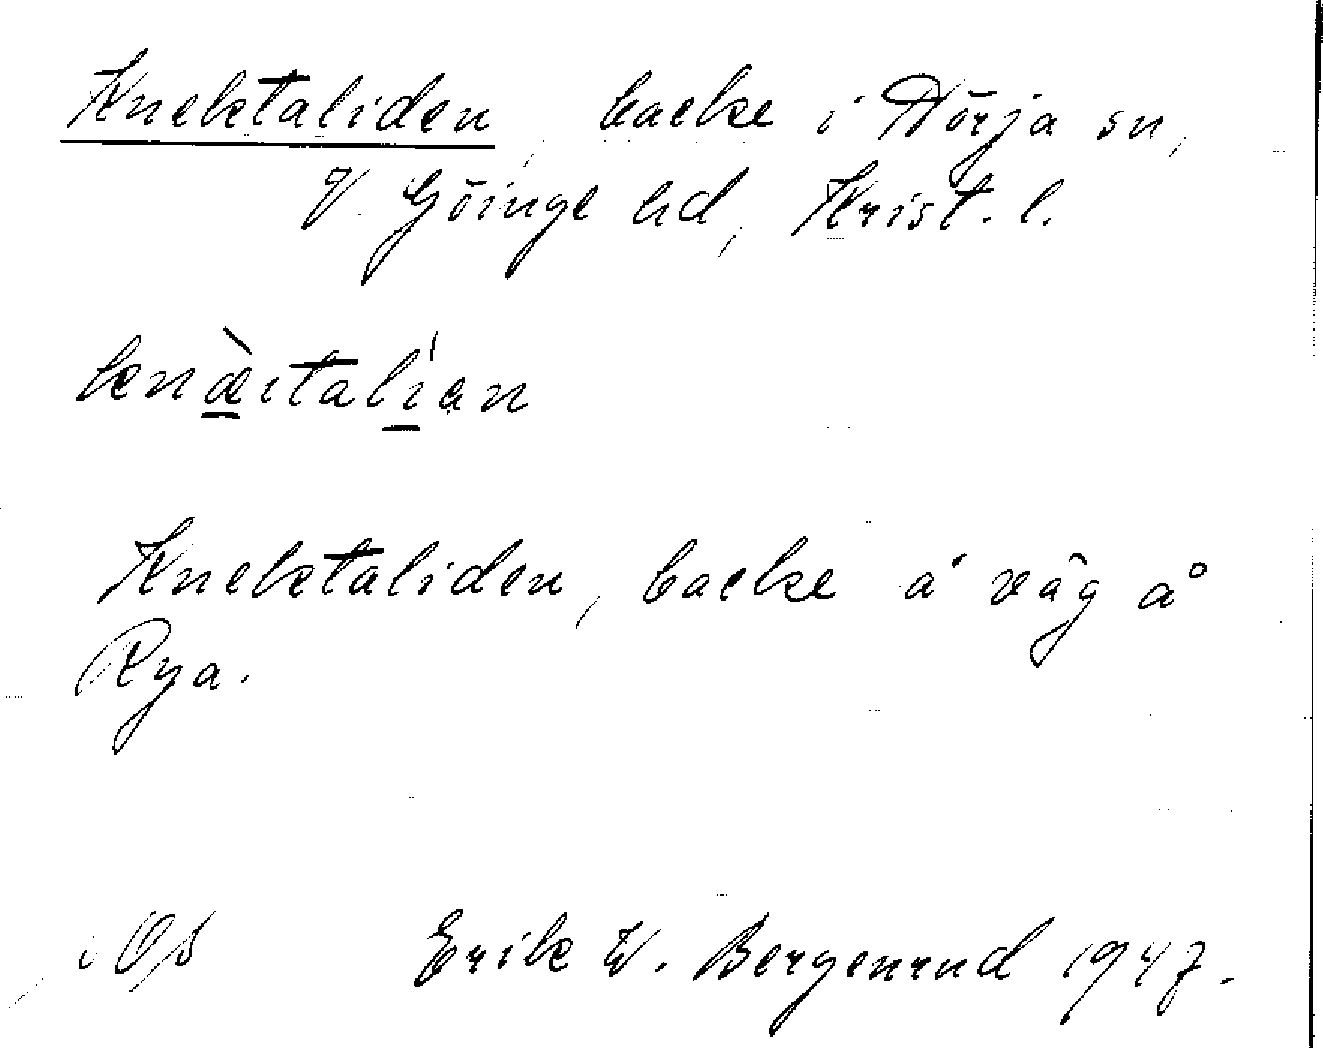 Knektaliden, backe i Nörja sn,
V. Göinge hd, Krist. l.
knæ̀italían
Knektaliden, backe å väg å
Rya.
Erik W. Bergenrud 1947.